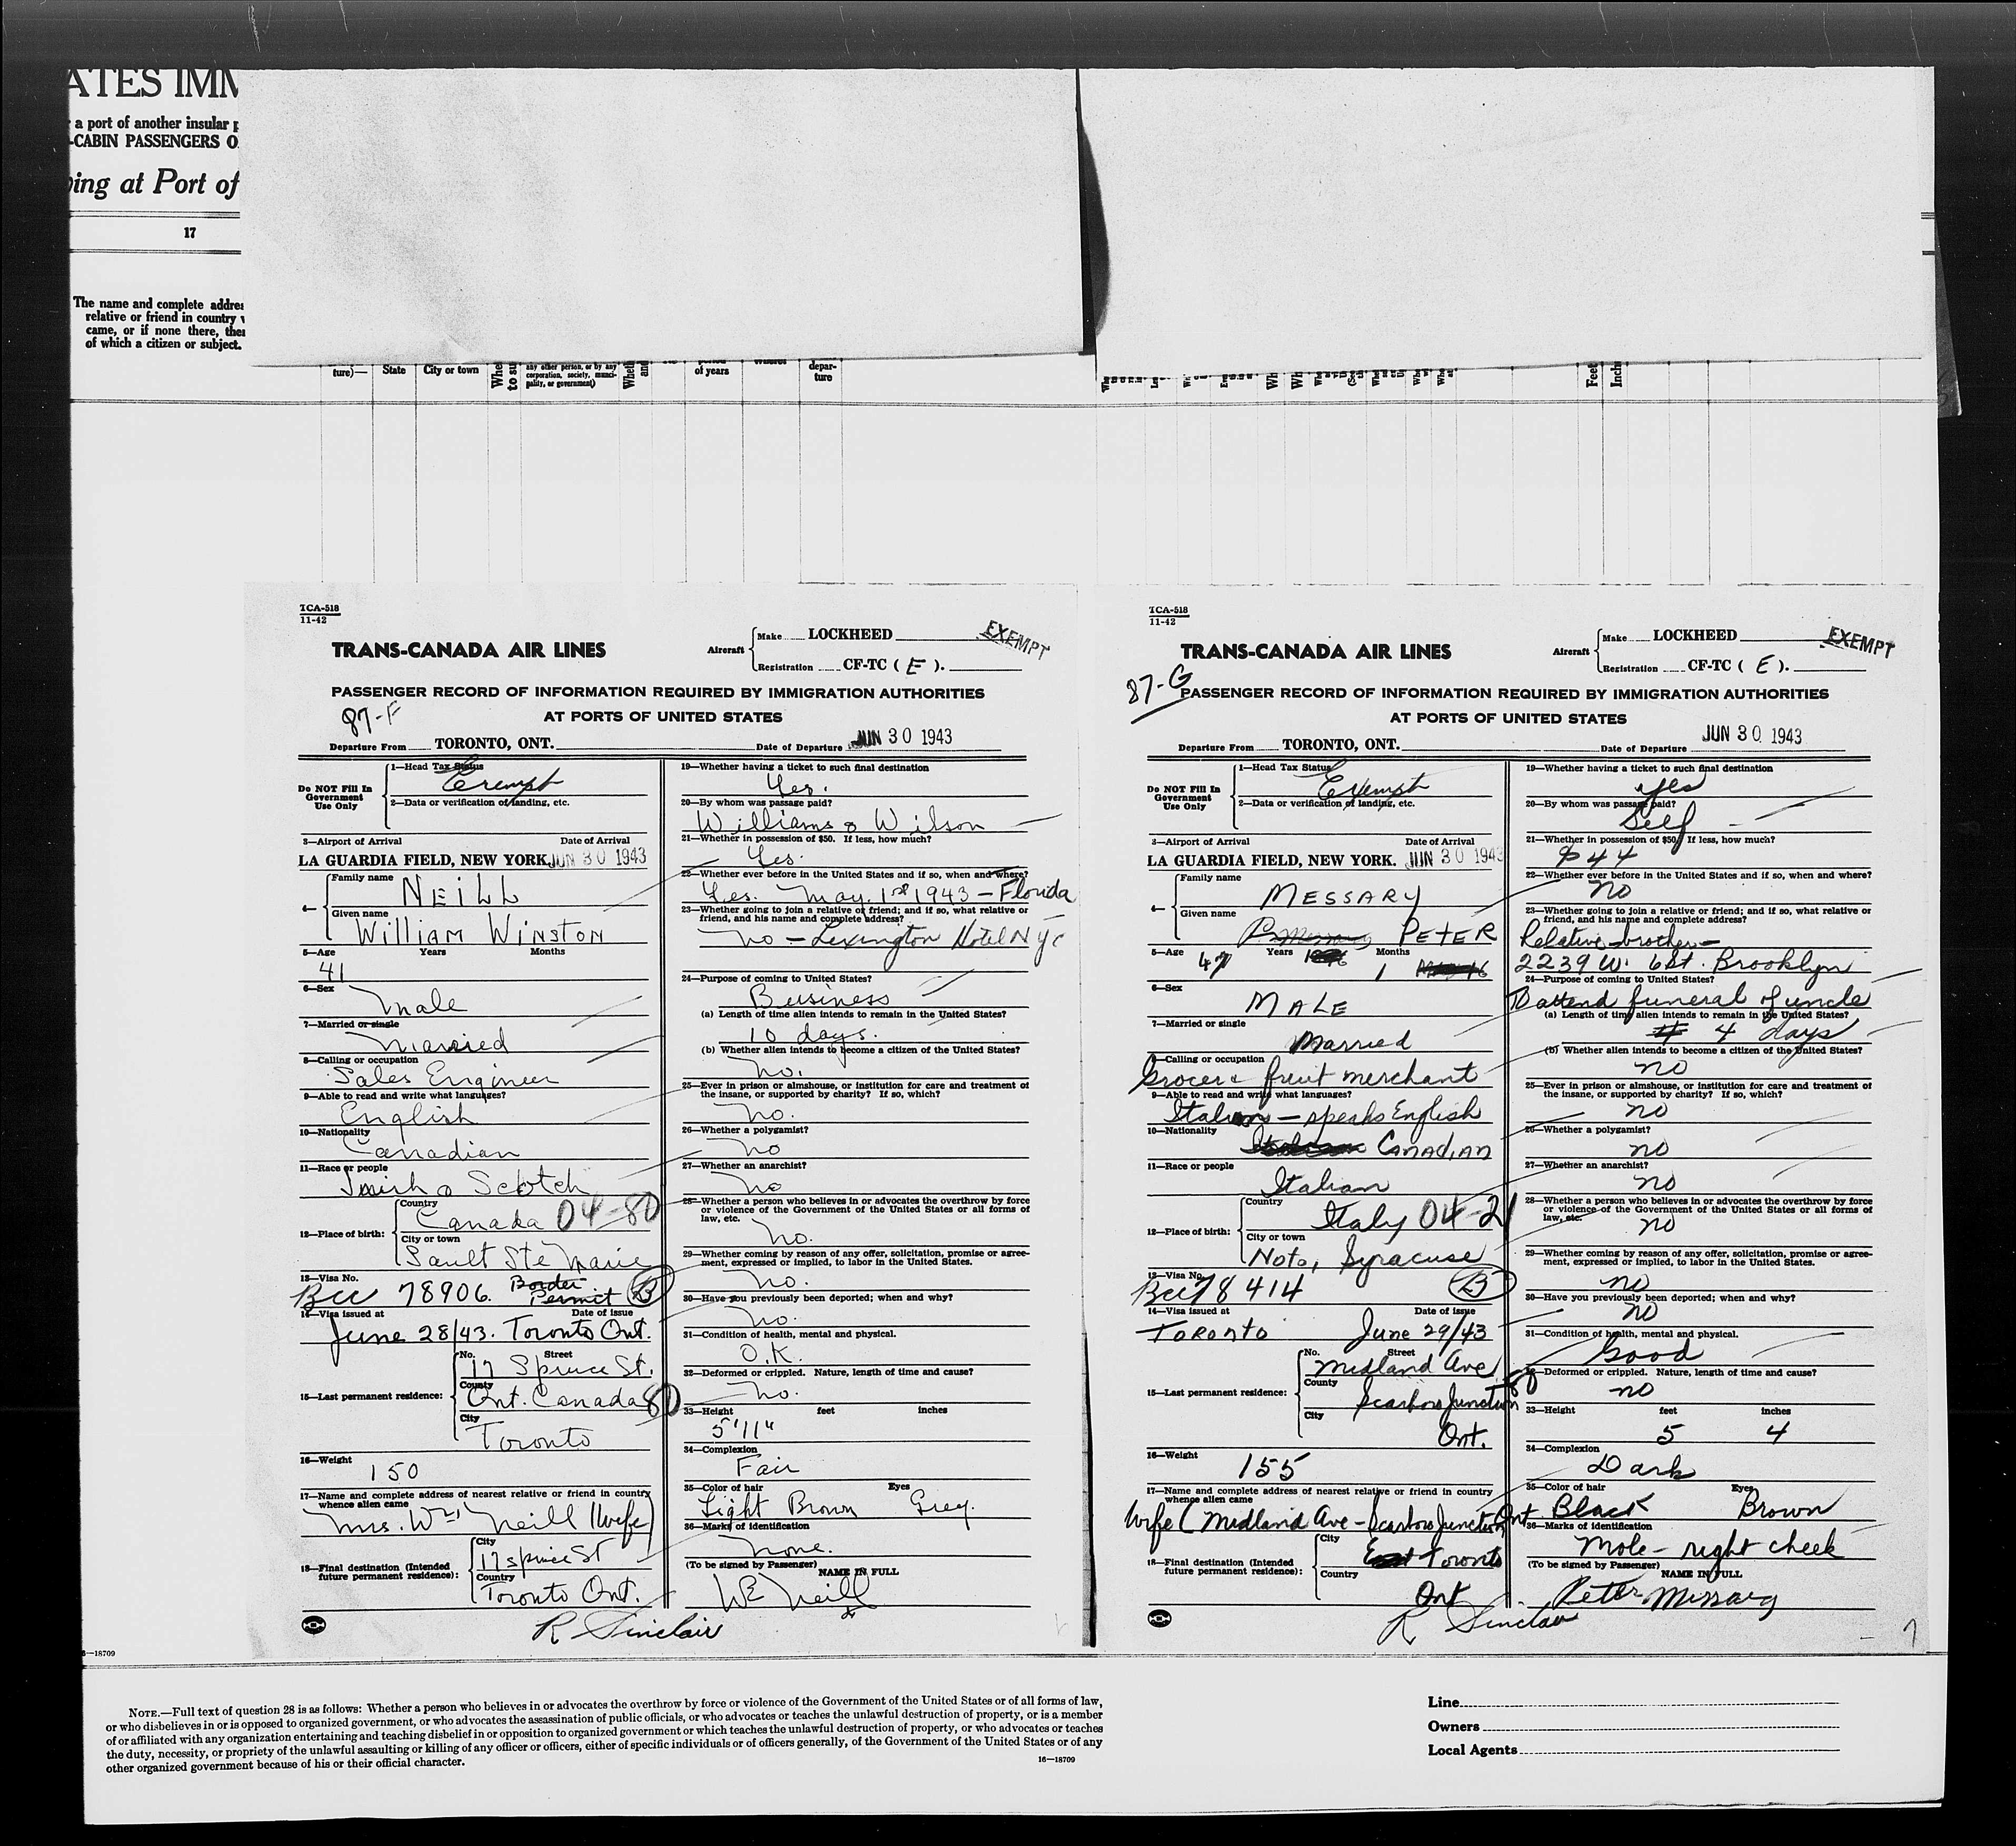 ATES IMM
a port of another insular p
-CABIN PASSENGERS O
ing at Port of
17
The name and complete addres
relative or friend in country w
came, or if none there, then
of which a citizen or subject.
ture)—
State
City or town
Whe
to su
any other person, or by any
corporation, society, munici-
pality, or government)
Wheth
and
of years
depar-
ture
Wh
Wh
Feet
Inch
TCA-518
11-42
TRANS-CANADA AIR LINES
Aircraft
Make LOCKHEED
Registration CF-TC ( E ).
EXEMPT
PASSENGER RECORD OF INFORMATION REQUIRED BY IMMIGRATION AUTHORITIES
87-F
AT PORTS OF UNITED STATES
Departure From TORONTO, ONT. Date of Departure JUN 30 1943
Do NOT Fill In
Government
Use Only
1—Head Tax Status
Exempt
2—Data or verification of landing, etc.
3—Airport of Arrival Date of Arrival
LA GUARDIA FIELD, NEW YORK. JUN 30 1943
4—
Family name
NEILL
Given name
William Winston
5—Age Years Months
41
6—Sex
Male
7—Married or single
Married
8—Calling or occupation
Sales Engineer
9—Able to read and write what languages?
English
10—Nationality
Canadian
11—Race or people
Irish & Scotch
12—Place of birth:
Country
Canada 04-80
City or town
Sault Ste Marie
13—Visa No.
Bcc 78906. Border
Permit B
14—Visa issued at Date of issue
June 28/43. Toronto Ont.
15—Last permanent residence:
No. Street
17 Spruce St.
County
Ont. Canada 80
City
Toronto
16—Weight
150
17—Name and complete address of nearest relative or friend in country
whence alien came
Mrs. Wm Neill (wife)
18—Final destination (Intended
future permanent residence):
City
17 spruce St
Country
Toronto Ont.
R Sinclair
19—Whether having a ticket to such final destination
Yes.
20—By whom was passage paid?
Williams & Wilson
21—Whether in possession of $50. If less, how much?
Yes.
22—Whether ever before in the United States and if so, when and where?
Yes. May. 1st 1943 - Florida
23—Whether going to join a relative or friend; and if so, what relative or
friend, and his name and complete address?
No - Lexington Hotel NYC
24—Purpose of coming to United States?
Business
(a) Length of time alien intends to remain in the United States?
10 days.
(b) Whether alien intends to become a citizen of the United States?
No.
25—Ever in prison or almshouse, or institution for care and treatment of
the insane, or supported by charity? If so, which?
No.
26—Whether a polygamist?
No
27—Whether an anarchist?
No
28—Whether a person who believes in or advocates the overthrow by force
or violence of the Government of the United States or all forms of
law, etc.
No.
29—Whether coming by reason of any offer, solicitation, promise or agree-
ment, expressed or implied, to labor in the United States.
No.
30—Have you previously been deported; when and why?
No.
31—Condition of health, mental and physical.
O.K.
32—Deformed or crippled. Nature, length of time and cause?
No.
33—Height feet inches
5'11"
34—Complexion
Fair
35—Color of hair Eyes
Light Brown Grey.
36—Marks of identification
None.
(To be signed by Passenger)
NAME IN FULL
TCA-518
11-42
TRANS-CANADA AIR LINES
Aircraft
Make LOCKHEED
Registration CF-TC ( E ).
EXEMPT
87-G
PASSENGER RECORD OF INFORMATION REQUIRED BY IMMIGRATION AUTHORITIES
AT PORTS OF UNITED STATES
Departure From TORONTO, ONT. Date of Departure JUN 30 1943
Do NOT Fill In
Government
Use Only
1—Head Tax Status
Exempt
2—Data or verification of landing, etc.
3—Airport of Arrival Date of Arrival
LA GUARDIA FIELD, NEW YORK. JUN 30 1943
4—
Family name
MESSARY
Given name
PETER
5—Age 47 Years Months 1
6—Sex
MALE
7—Married or single
Married
8—Calling or occupation
Grocer & fruit merchant
9—Able to read and write what languages?
Italian - speaks English
10—Nationality
CANADIAN
11—Race or people
Italian
12—Place of birth:
Country
Italy 04-21
City or town
Noto, Syracuse
13—Visa No.
Bcc 78414 B
14—Visa issued at Date of issue
TORONTO June 29/43
15—Last permanent residence:
No. Street
Midland Ave
County
Scarboro Junction 80
City
Ont.
16—Weight
155
17—Name and complete address of nearest relative or friend in country
whence alien came
Wife (Midland Ave - Scarboro Junction Ont
18—Final destination (Intended
future permanent residence):
City
Toronto
Country
Ont
R Sinclair
19—Whether having a ticket to such final destination
yes
20—By whom was passage paid?
Self
21—Whether in possession of $50. If less, how much?
$44
22—Whether ever before in the United States and if so, when and where?
no
23—Whether going to join a relative or friend; and if so, what relative or
friend, and his name and complete address?
Relative - brother -
2239 W. 6 St. Brooklyn
24—Purpose of coming to United States?
To attend funeral of uncle
(a) Length of time alien intends to remain in the United States?
4 days
(b) Whether alien intends to become a citizen of the United States?
no
25—Ever in prison or almshouse, or institution for care and treatment of
the insane, or supported by charity? If so, which?
no
26—Whether a polygamist?
no
27—Whether an anarchist?
no
28—Whether a person who believes in or advocates the overthrow by force
or violence of the Government of the United States or all forms of
law, etc.
no
29—Whether coming by reason of any offer, solicitation, promise or agree-
ment, expressed or implied, to labor in the United States.
no
30—Have you previously been deported; when and why?
no
31—Condition of health, mental and physical.
Good
32—Deformed or crippled. Nature, length of time and cause?
no
33—Height feet inches
5 4
34—Complexion
Dark
35—Color of hair Eyes
Black Brown
36—Marks of identification
Mole - right cheek
(To be signed by Passenger)
NAME IN FULL
Peter Messary
16—18709
NOTE.—Full text of question 28 is as follows: Whether a person who believes in or advocates the overthrow by force or violence of the Government of the United States or of all forms of law,
or who disbelieves in or is opposed to organized government, or who advocates the assassination of public officials, or who advocates or teaches the unlawful destruction of property, or is a member
of or affiliated with any organization entertaining and teaching disbelief in or opposition to organized government or which teaches the unlawful destruction of property, or who advocates or teaches
the duty, necessity, or propriety of the unlawful assaulting or killing of any officer or officers, either of specific individuals or of officers generally, of the Government of the United States or of any
other organized government because of his or their official character.
16—18709
Line
Owners
Local Agents